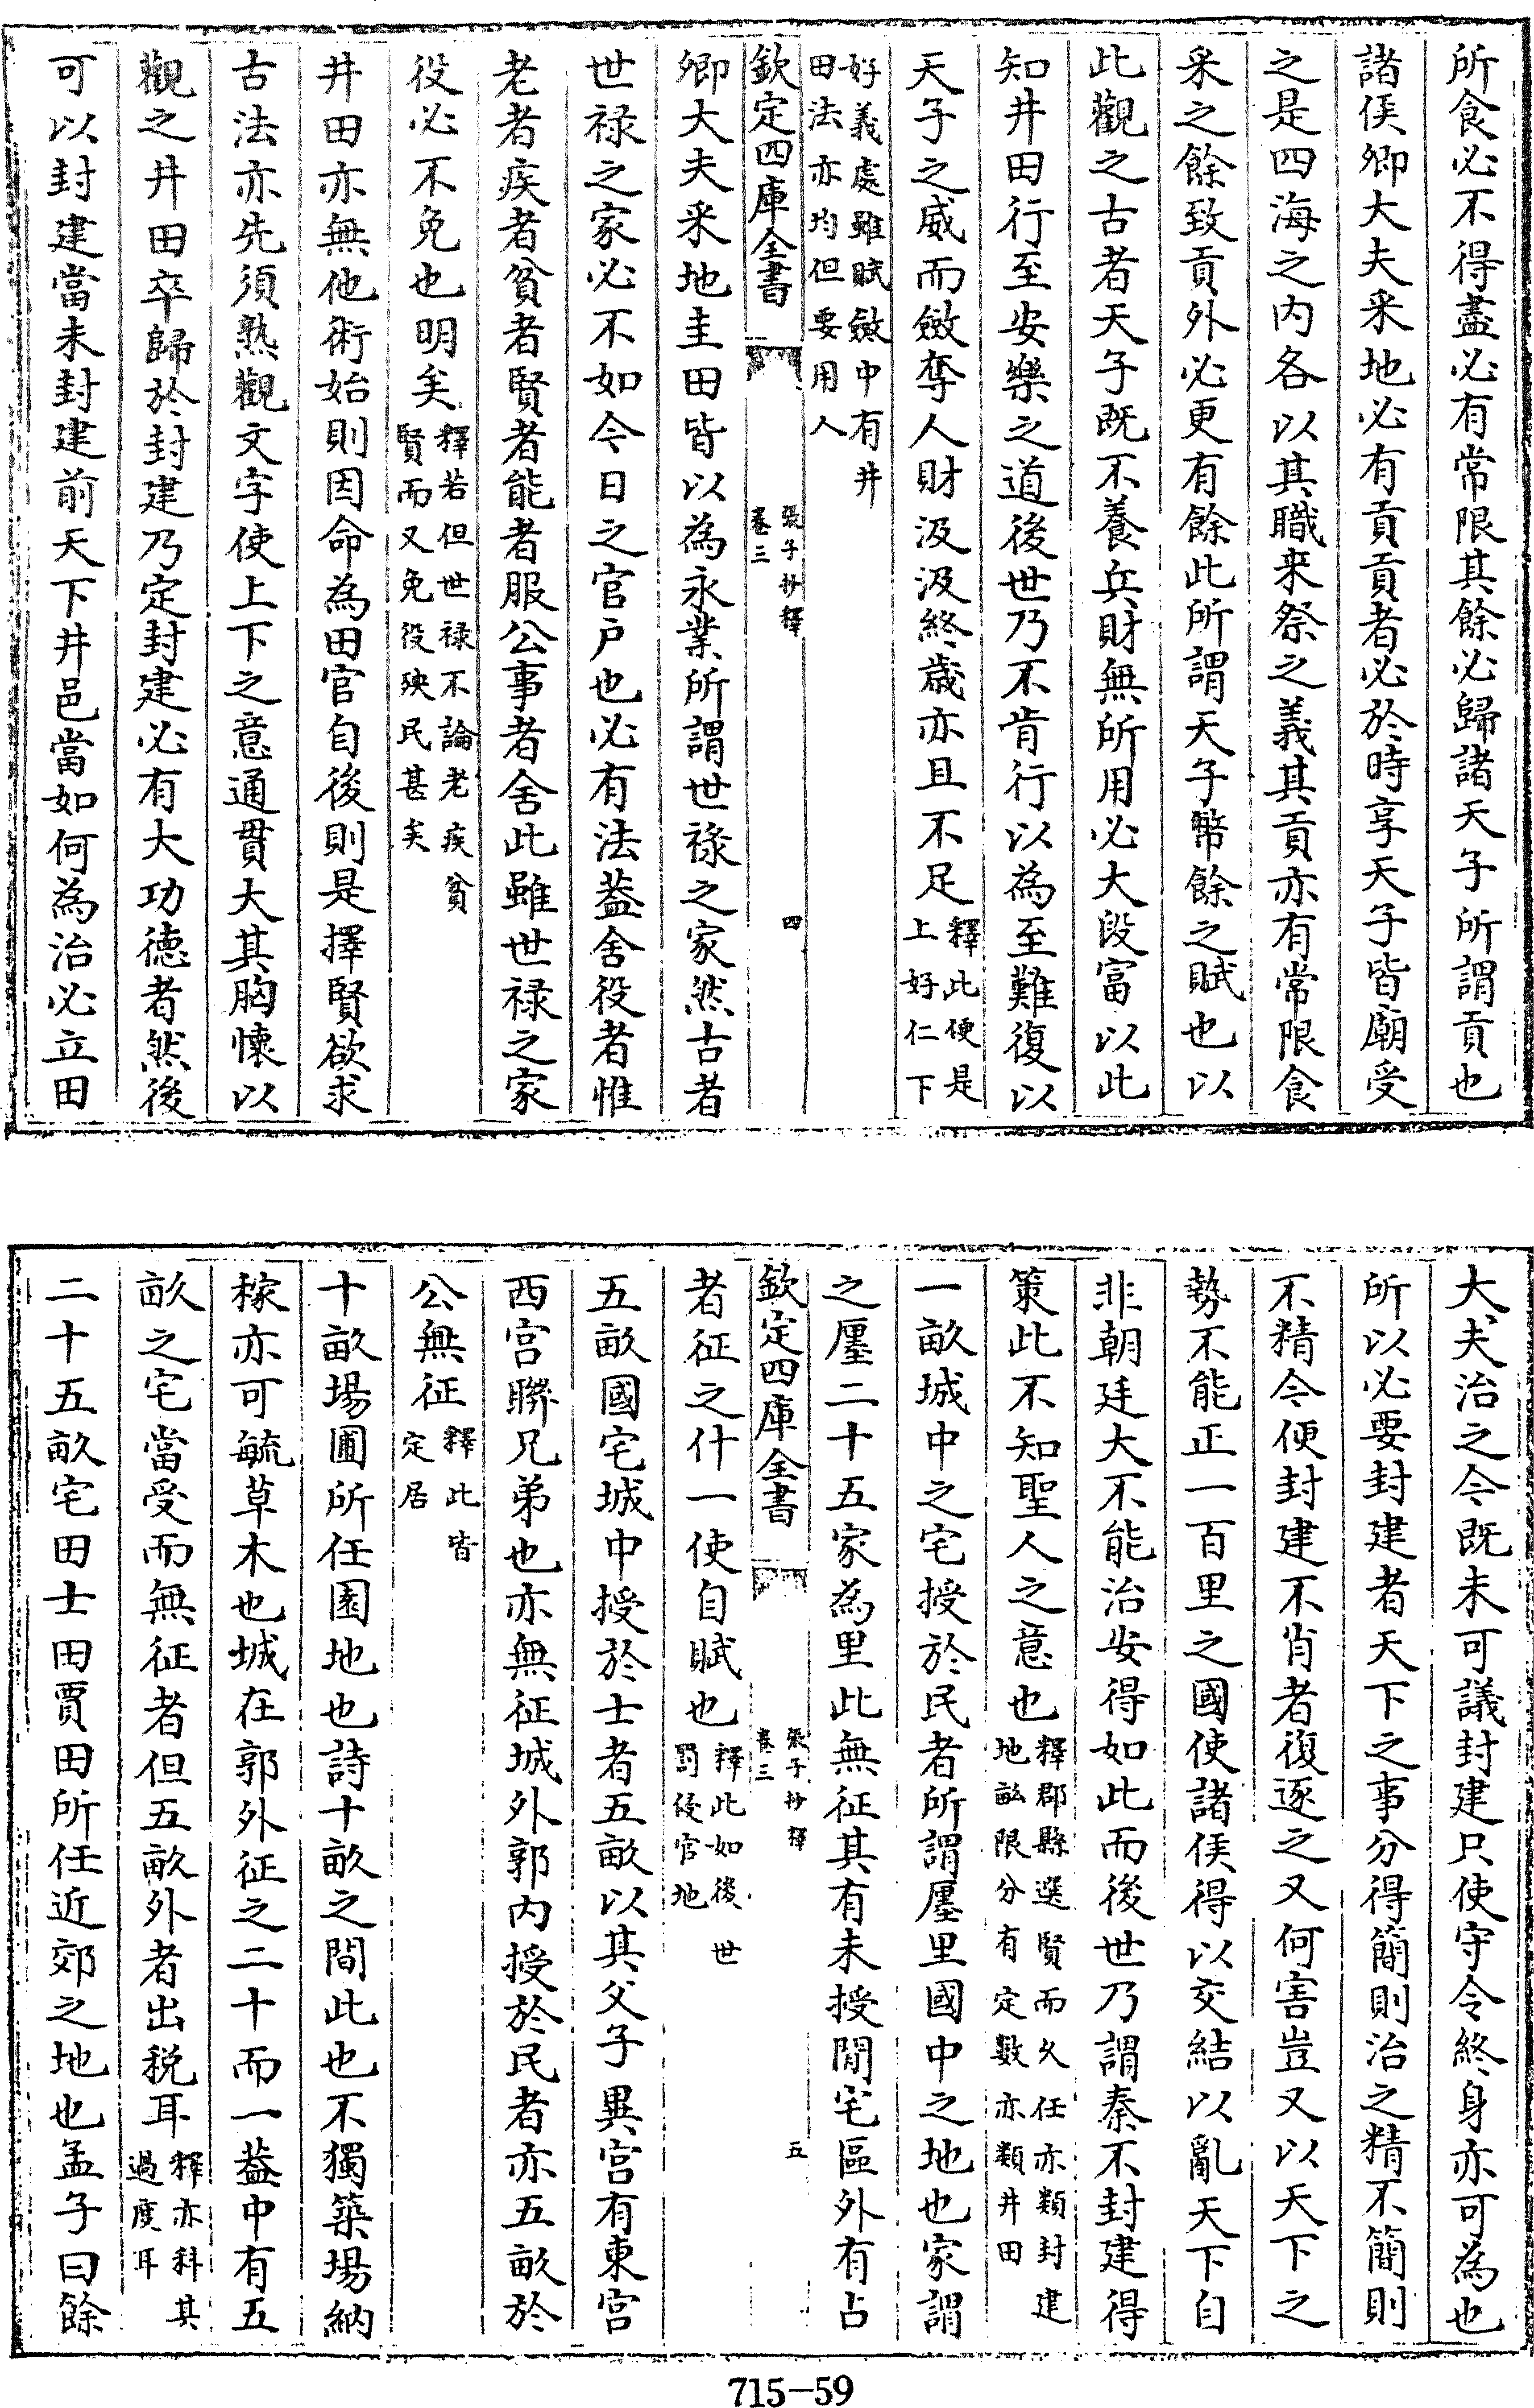 所食必不得盡必有常限其餘必歸諸天子所謂貢也
諸侯卿大夫采地必有貢貢者必於時享天子皆廟受
之是四海之内各以其職来祭之義其貢亦有常限食
采之餘致貢外必更有餘此所謂天子幣餘之賦也以
此觀之古者天子既不養兵財無所用必大段富以此
知井田行至安樂之道後世乃不肯行以為至難復以
天子之威而斂奪人財汲汲終歲亦且不足釋此便是上好仁下
好義處雖賦斂中有井田法亦均但要用人
欽定四庫全書
張子抄釋
卷三
四
卿大夫采地圭田皆以為永業所謂世禄之家然古者
世禄之家必不如今日之官户也必有法葢舍役者惟
老者疾者貧者賢者能者服公事者舍此雖世禄之家
役必不免也明矣釋若但世禄不論老疾貧賢而又免役殃民甚矣
井田亦無他術始則因命為田官自後則是擇賢欲求
古法亦先須熟觀文字使上下之意通貫大其胸懷以
觀之井田卒歸於封建乃定封建必有大功德者然後
可以封建當未封建前天下井邑當如何為治必立田
大夫治之今既未可議封建只使守令終身亦可為也
所以必要封建者天下之事分得簡則治之精不簡則
不精今便封建不肖者復逐之又何害豈又以天下之
勢不能正一百里之國使諸侯得以交結以亂天下自
非朝廷大不能治安得如此而後世乃謂秦不封建得
策此不知聖人之意也釋郡縣選賢而久任亦類封建地畝限分有定數亦類井田
一畝城中之宅授於民者所謂廛里國中之地也家謂
之廛二十五家為里此無征其有未授閒宅區外有占
欽定四庫全書
張子抄釋
卷三
五
者征之什一使自賦也釋此如後世罰侵官地
五畝國宅城中授於士者五畝以其父子異宫有東宫
西宫聯兄弟也亦無征城外郭内授於民者亦五畝於
公無征釋此皆定居
十畝場圃所任園地也詩十畝之間此也不獨築場納
稼亦可毓草木也城在郭外征之二十而一葢中有五
畝之宅當受而無征者但五畝外者出税耳釋亦科其過度耳
二十五畝宅田士田賈田所任近郊之地也孟子曰餘
715-59